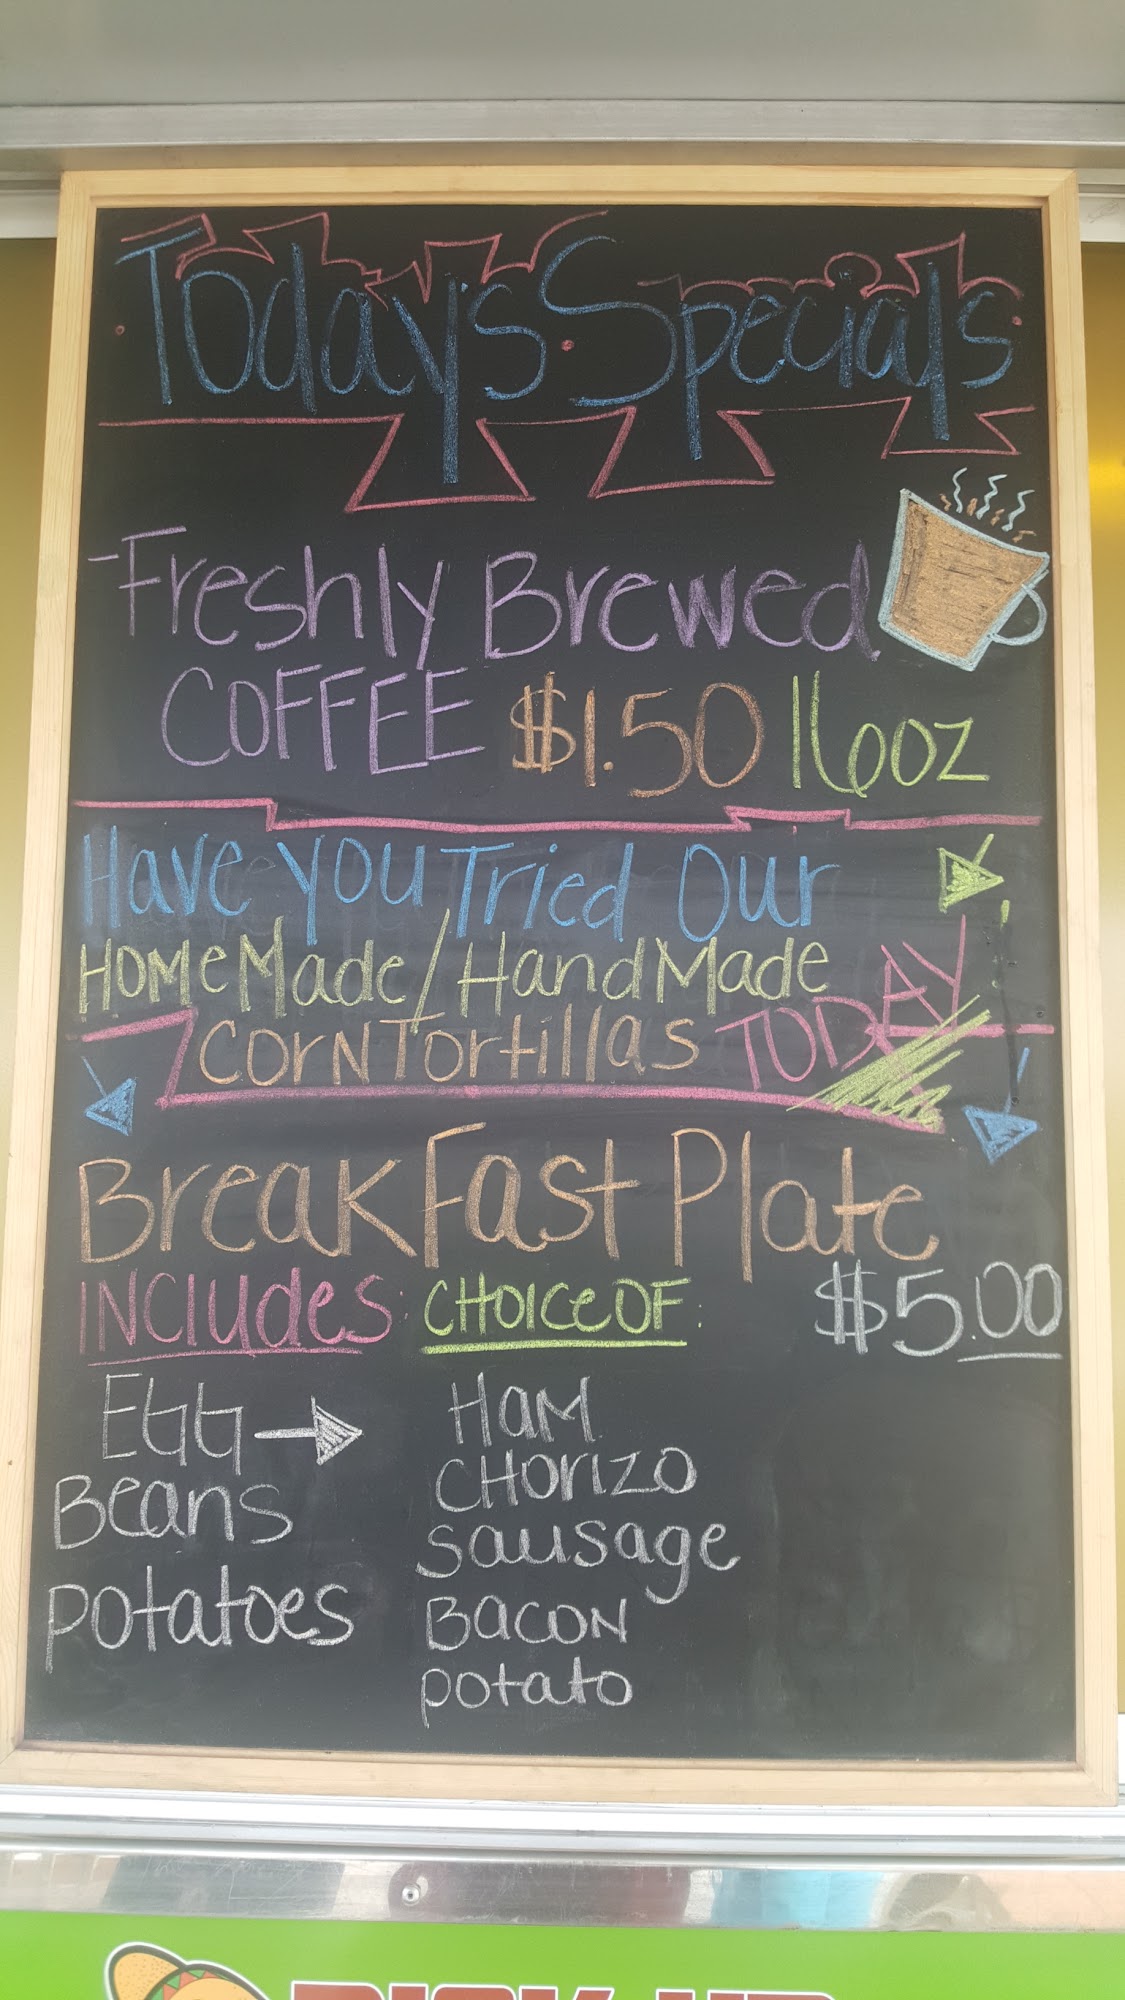 Today's Specials
-Freshly Brewed
COFFEE $1.50 16oz
Have you Tried Our
HOMeMade/HandMade
CorNTortillas TODAY
BreakFast Plate
INCludes: CHOICeOF:
$5.00
EGG → HaM
Beans CHOrIZO
potatoes sausage
BaCON
potato
PICK-UP